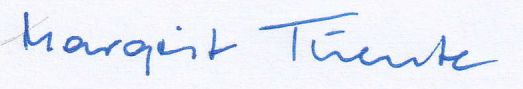 Margrit Tüente